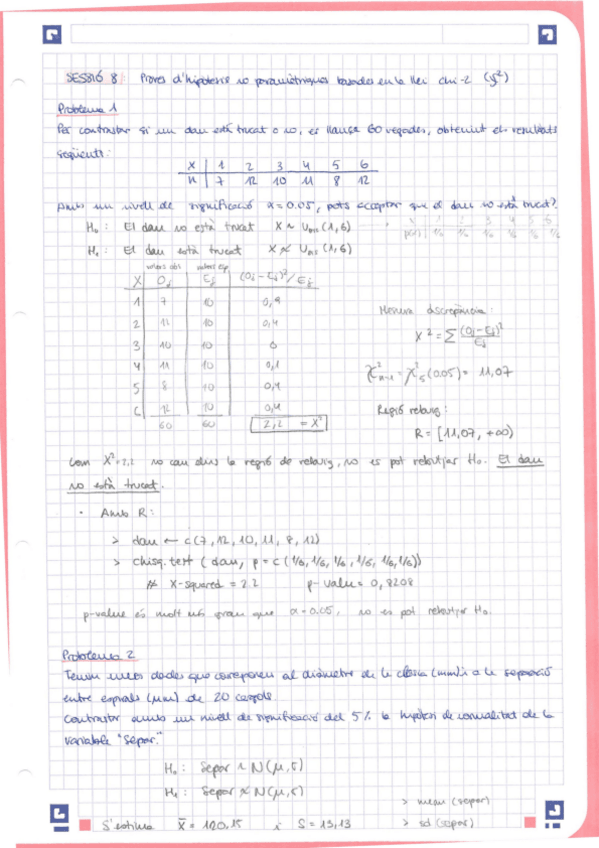 SESSIÓ 8 Proves d'hipòtesis no paramètriques basades en la llei chi-2 (χ²)
Problema 1
Per contrastar si un dau està trucat o no, es llança 60 vegades, obtenint els resultats
següents:
X 1 2 3 4 5 6
n 7 12 10 11 8 12
Amb un nivell de significació α=0.05, pots acceptar que el dau no està trucat?
H₀: El dau no està trucat X ~ Unif (1,6)
X 1 2 3 4 5 6
p(x) 1/6 1/6 1/6 1/6 1/6 1/6
H₁: El dau està trucat X ≁ Unif (1,6)
valors obs valors esp
X Oj Ej (Oj-Ej)²/Ej
1 7 10 0,9
2 12 10 0,4
3 10 10 0
4 11 10 0,1
5 8 10 0,4
6 12 10 0,4
60 60 2,2 = X²
Mesura discrepància:
X² = Σ (Oj-Ej)²/Ej
χ²n-1 = χ²5 (0.05) = 11,07
Regió rebuig:
R = [11,07, +∞)
Com X²=2,2 no cau dins la regió de rebuig, no es pot rebutjar H₀. El dau
no està trucat.
· Amb R:
> dau ← c(7, 12, 10, 11, 8, 12)
> chisq.test (dau, p = c(1/6, 1/6, 1/6, 1/6, 1/6, 1/6))
# X-squared = 2.2 p-value = 0,8208
p-value és molt més gran que α=0.05, no es pot rebutjar H₀.
Problema 2
Tenim unes dades que corresponen al diàmetre de la closca (mm) i a la separació
entre espirals (μm) de 20 cargols.
Contrastar amb un nivell de significació del 5% la hipòtesi de normalitat de la
variable "Separ."
H₀: Separ ~ N(μ,σ)
H₁: Separ ≁ N(μ,σ)
> mean (separ)
S'estima x̄ = 120,15 i S = 13,13 > sd (separ)